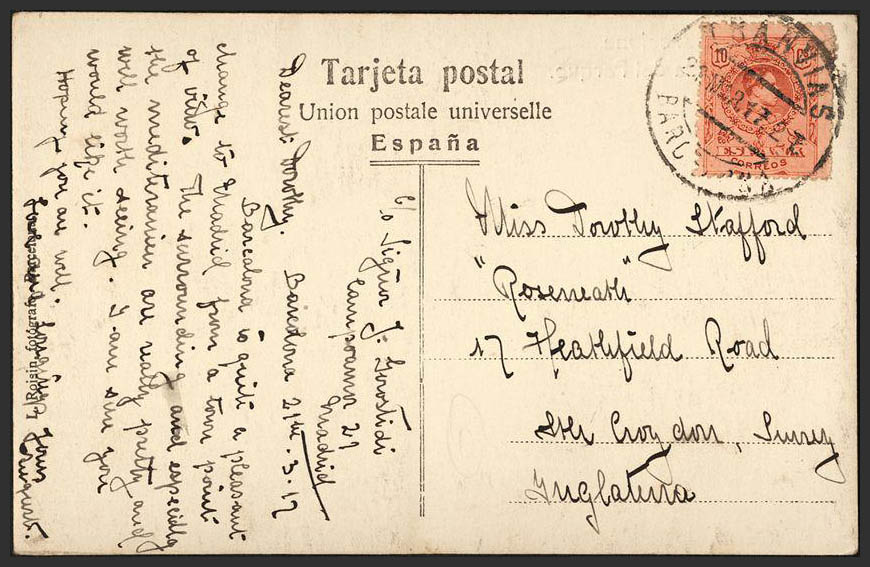 Tarjeta postal
Union postale universelle
España
10
CORREOS
TRANVIAS
BARC
Miss Dorothy Stafford
"Roseneath"
17 Heathfield Road
Sth Croydon, Surrey
Inglaterra
c/o Signor J.
Campoamor 29
Madrid
Barcelona 21st. 3. 17
Dearest Dorothy.
Barcelona is quite a pleasant
change to Madrid from a town point
of view. The surrounding and especially
the mediterranien are really pretty and
well worth seeing. I am sure you
would like it.
Hoping you are well.
Yours
L. Roisin, fotógrafo, Barcelona